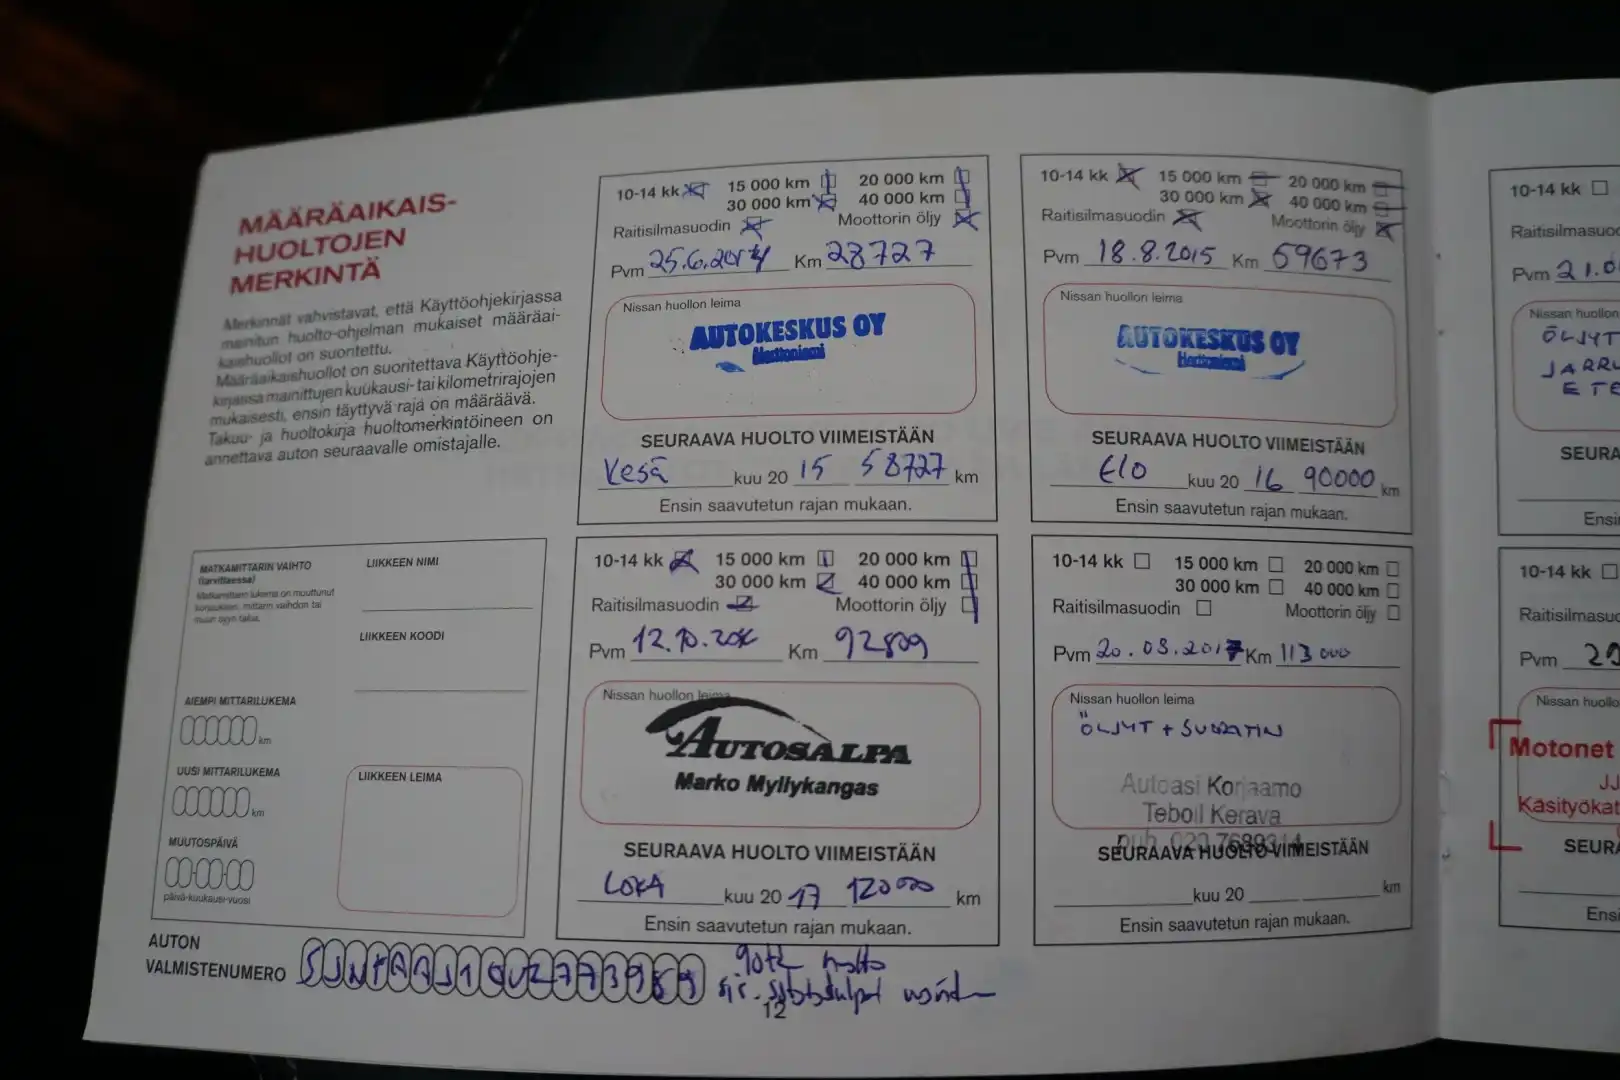 MÄÄRÄAIKAIS-
HUOLTOJEN
MERKINTÄ
Merkinnät vahvistavat, että Käyttöohjekirjassa
mainitun huolto-ohjelman mukaiset määräai-
kaishuollot on suoritettu.
Määräaikaishuollot on suoritettava Käyttöohje-
kirjassa mainittujen kuukausi- tai kilometrirajojen
mukaisesti, ensin täyttyvä raja on määräävä.
Takuu- ja huoltokirja huoltomerkintöineen on
annettava auton seuraavalle omistajalle.
10-14 kk 15 000 km 20 000 km
30 000 km 40 000 km
Raitisilmasuodin Moottorin öljy
Pvm 25.6.2014 Km 28727
Nissan huollon leima
AUTOKESKUS OY
Herttoniemi
SEURAAVA HUOLTO VIIMEISTÄÄN
Kesä kuu 20 15 58727 km
Ensin saavutetun rajan mukaan.
10-14 kk 15 000 km 20 000 km
30 000 km 40 000 km
Raitisilmasuodin Moottorin öljy
Pvm 18.8.2015 Km 59673
Nissan huollon leima
AUTOKESKUS OY
Herttoniemi
SEURAAVA HUOLTO VIIMEISTÄÄN
Elo kuu 20 16 90000 km
Ensin saavutetun rajan mukaan.
10-14 kk
Raitisilmasuo
Pvm 21.0
Nissan huollon
ÖLJYT
JARRU
ETE
SEURA
Ensi
MATKAMITTARIN VAIHTO
(tarvittaessa)
Matkamittarin lukema on muuttunut
korjauksen, mittarin vaihdon tai
muun syyn takia.
LIIKKEEN NIMI
LIIKKEEN KOODI
AIEMPI MITTARILUKEMA
km
UUSI MITTARILUKEMA
km
MUUTOSPÄIVÄ
päivä-kuukausi-vuosi
LIIKKEEN LEIMA
10-14 kk 15 000 km 20 000 km
30 000 km 40 000 km
Raitisilmasuodin Moottorin öljy
Pvm 12.10.2016 Km 92809
Nissan huollon leima
AUTOSALPA
Marko Myllykangas
SEURAAVA HUOLTO VIIMEISTÄÄN
LOKA kuu 20 17 120000 km
Ensin saavutetun rajan mukaan.
10-14 kk 15 000 km 20 000 km
30 000 km 40 000 km
Raitisilmasuodin Moottorin öljy
Pvm 20.03.2017 Km 113000
Nissan huollon leima
ÖLJYT + SUODATIN
Autoasi Korjaamo
Teboil Kerava
puh. 020 7689314
SEURAAVA HUOLTO VIIMEISTÄÄN
kuu 20 km
Ensin saavutetun rajan mukaan.
10-14 kk
Raitisilmasuo
Pvm 29
Nissan huollo
Motonet
JJ
Käsityökat
SEURA
Ensi
AUTON
VALMISTENUMERO
90tk huolto
12